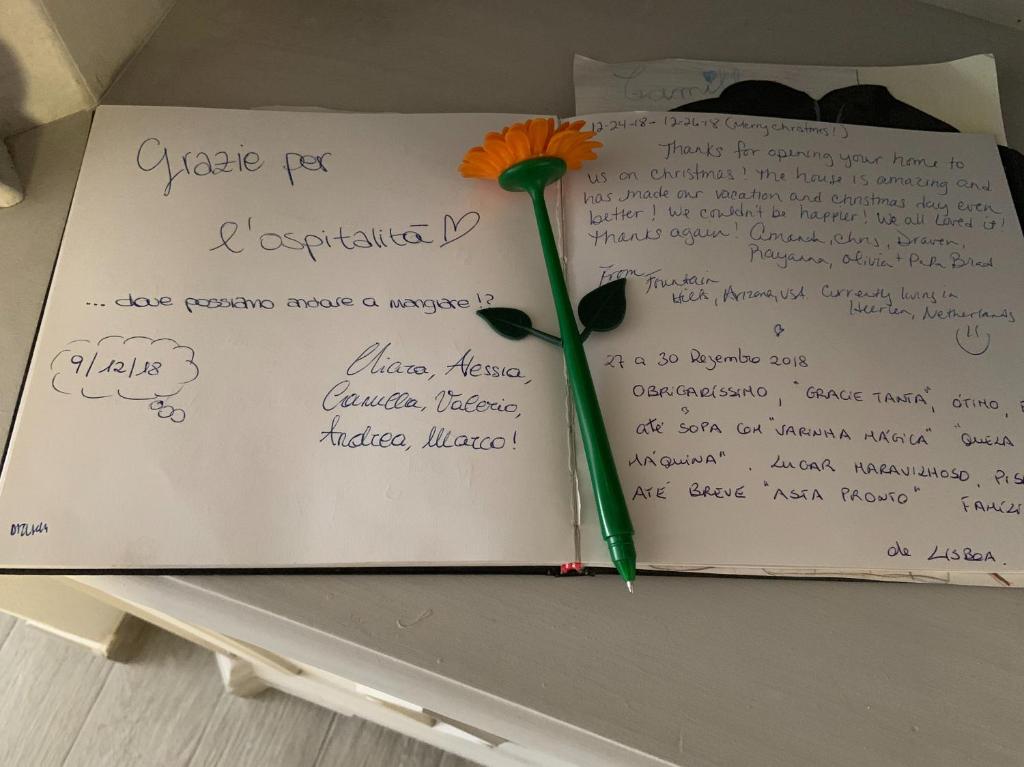 Grazie per
l'ospitalità
... dove possiamo andare a mangiare!?
9/12/18
Chiara, Alessia,
Camilla, Valerio,
Andrea, Marco!
12-24-18 - 12-26-18 (Merry Christmas!)
Thanks for opening your home to
us on christmas! The house is amazing and
has made our vacation and christmas day even
better! We couldn't be happier! We all loved it!
Thanks again! Amanda, Chris, Draven,
Rayanna, Olivia + Papa Brad
From Fountain
Hills, Arizona, USA. Currently living in
Heerlen, Netherlands
27 a 30 Dezembro 2018
OBRIGARÍSSIMO, "GRACIE TANTA", ÓTIMO,
até SOPA COM "VARINHA MÁGICA" "QUELA
MÁQUINA". LUGAR MARAVILHOSO,
ATÉ BREVE "ASTA PRONTO"
de LISBOA.